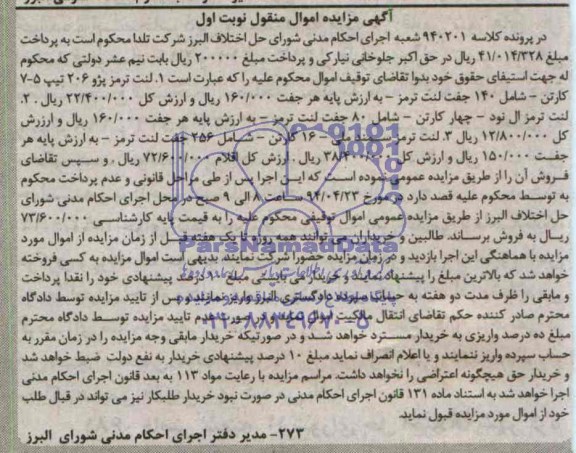 آگهی مزایده اموال منقول نوبت اول
در پرونده کلاسه ۹۴۰۲۰۱ شعبه اجرای احکام مدنی شورای حل اختلاف البرز شرکت تلدا محکوم است به پرداخت
مبلغ ۴۱/۰۱۴/۳۲۸ ریال در حق اکبر جلوخانی نیارکی و پرداخت مبلغ ۲۰۰۰۰۰ ریال بابت نیم عشر دولتی که محکوم
له جهت استیفای حقوق خود بدوا تقاضای توقیف اموال محکوم علیه را که عبارت است ۱. لنت ترمز پژو ۲۰۶ تیپ ۵-۷
کارتن - شامل ۱۴۰ جفت لنت ترمز - به ارزش پایه هر جفت ۱۶۰/۰۰۰ ریال و ارزش کل ۲۲/۴۰۰/۰۰۰ ریال . ۲.
لنت ترمز ال نود - چهار کارتن - شامل ۸۰ جفت لنت ترمز - به ارزش پایه هر جفت ۱۶۰/۰۰۰ ریال و ارزش
کل ۱۲/۸۰۰/۰۰۰ ریال ۳. لنت ترمز - ۱۶ کارتن - شامل ۲۵۶ جفت لنت ترمز - به ارزش پایه هر
جفت ۱۵۰/۰۰۰ ریال و ارزش کل ۳۸/۴۰۰/۰۰۰ ریال . ارزش کل اقلام ۷۳/۶۰۰/۰۰۰ ریال . و سپس تقاضای
فروش آن را از طریق مزایده عمومی نموده است که این اجرا پس از طی مراحل قانونی و عدم پرداخت محکوم
به توسط محکوم علیه قصد دارد در مورخ ۹۴/۰۴/۲۳ ساعت ۸ الی ۹ صبح در محل اجرای احکام مدنی شورای
حل اختلاف البرز از طریق مزایده عمومی اموال توقیفی محکوم علیه را به قیمت پایه کارشناسی ۷۳/۶۰۰/۰۰۰
ریال به فروش برساند. طالبین و خریداران می توانند همه روزه تا یک هفته قبل از زمان مزایده از اموال مورد
مزایده با هماهنگی این اجرا بازدید و در زمان مزایده حضورا شرکت نمایند. بدیهی است اموال مزایده به کسی فروخته
خواهد شد که بالاترین مبلغ را پیشنهاد نماید و خریدار می بایستی مبلغ ۱۰ درصد پیشنهادی خود را نقدا پرداخت
و مابقی را ظرف مدت دو هفته به حساب سپرده دادگستری البرز واریز نمایند. پس از تایید مزایده توسط دادگاه
محترم صادر کننده حکم تقاضای انتقال مالکیت اموال نماید و در صورت عدم تایید مزایده توسط دادگاه محترم
مبلغ ده درصد واریزی به خریدار مسترد خواهد شد و در صورتیکه خریدار مابقی وجه مزایده را در زمان مقرر به
حساب سپرده واریز ننمایند و یا اعلام انصراف نماید مبلغ ۱۰ درصد پیشنهادی خریدار به نفع دولت ضبط خواهد شد
و خریدار حق هیچگونه اعتراضی را نخواهد داشت. مراسم مزایده با رعایت مواد ۱۱۳ به بعد قانون اجرای احکام مدنی
اجرا خواهد شد به استناد ماده ۱۳۱ قانون اجرای احکام مدنی در صورت نبود خریدار طلبکار نیز می تواند در قبال طلب
خود از اموال مورد مزایده قبول نماید.
۲۷۳- مدیر دفتر اجرای احکام مدنی شورای البرز
ParsNamadData
۰۲۱-۸۸۳۴۹۶۷۰-۵